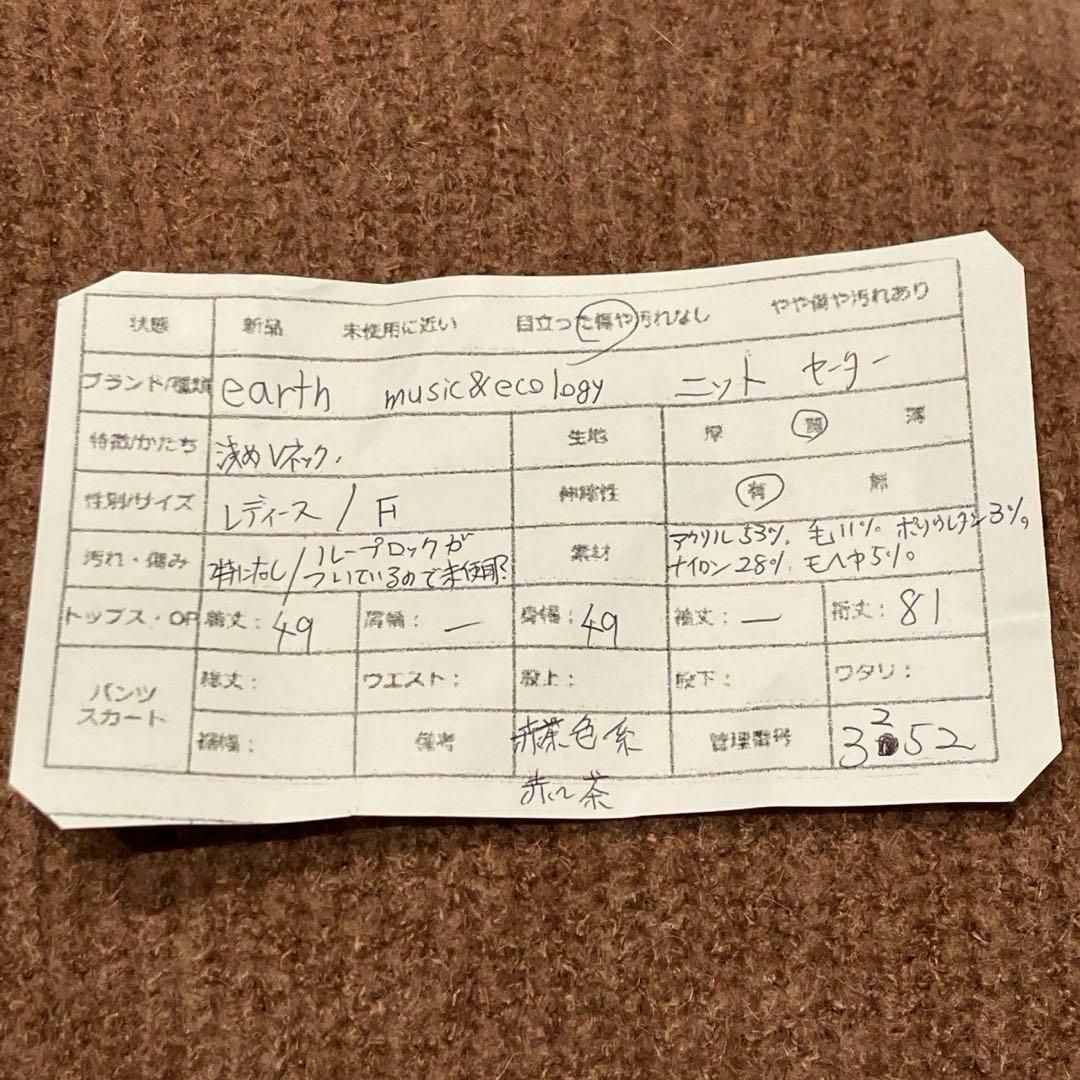 状態 新品 未使用に近い 目立った傷や汚れなし やや傷や汚れあり
ブランド/種類 earth music&ecology ニット セーター
特徴/かたち 浅めVネック. 生地 厚 間 薄
性別/サイズ レディース / F 伸縮性 有 無
汚れ・傷み 特になし/ループロックが
ついているので未使用?
素材 アクリル53% 毛11% ポリウレタン3%
ナイロン28% モヘヤ5%
トップス・OP 着丈: 49 肩幅: ー 身幅: 49 袖丈: ー 裄丈: 81
パンツ
スカート
総丈: ウエスト: 股上: 股下: ワタリ:
裾幅: 備考 赤茶色系 管理番号 3252
赤い茶